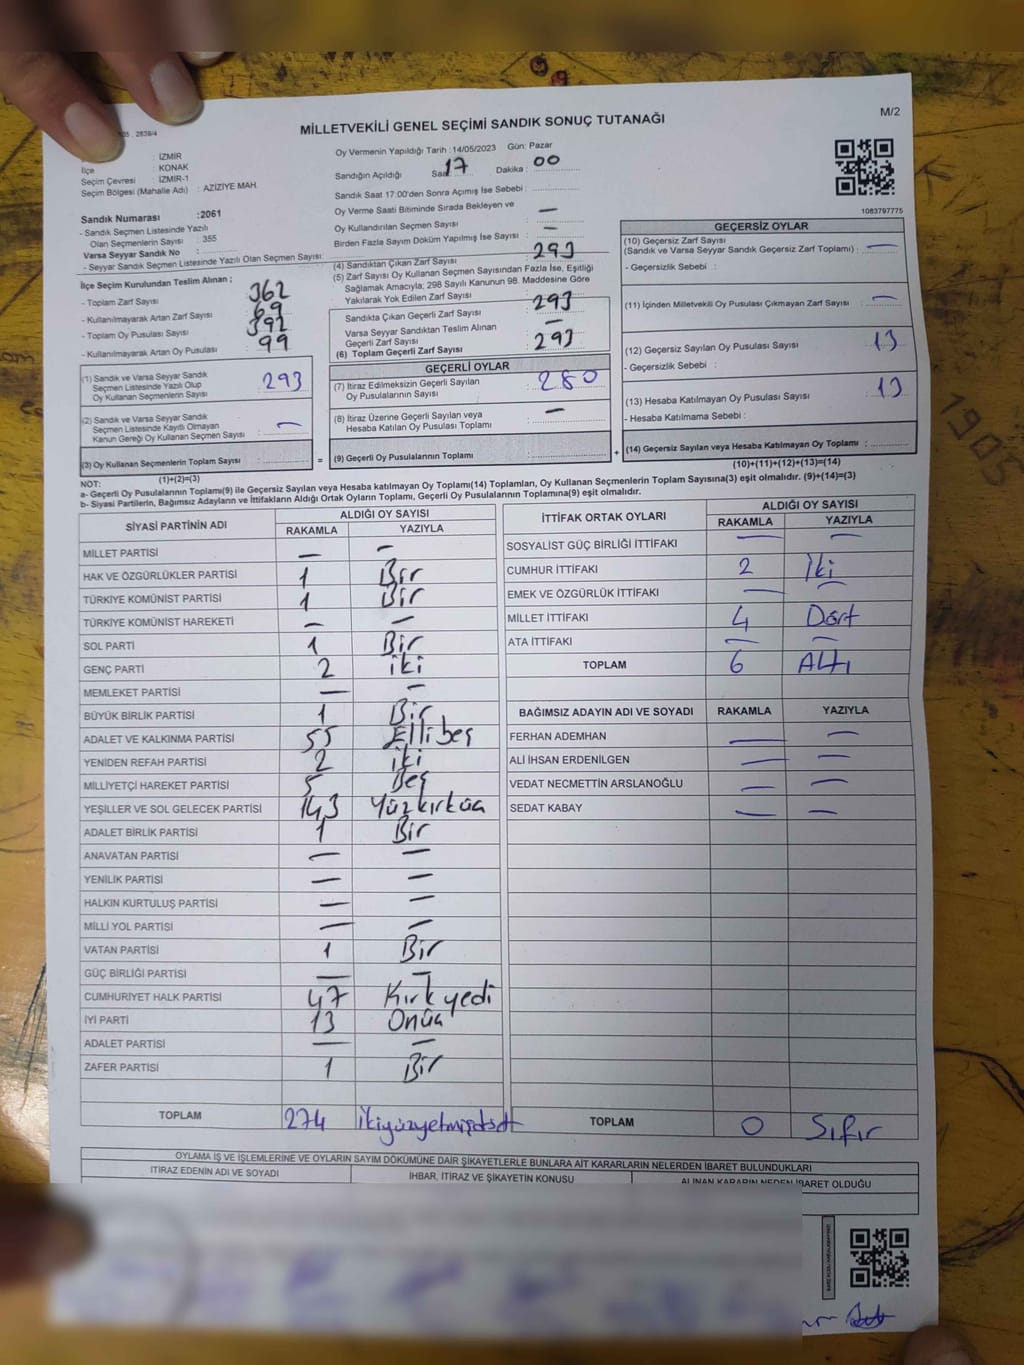 M/2
MİLLETVEKİLİ GENEL SEÇİMİ SANDIK SONUÇ TUTANAĞI
: İZMİR
İlçe : KONAK
Seçim Çevresi : İZMİR-1
Seçim Bölgesi (Mahalle Adı) : AZİZİYE MAH.
Oy Vermenin Yapıldığı Tarih : 14/05/2023 Gün: Pazar
Sandığın Açıldığı Saat 17 Dakika : 00
Sandık Saat 17.00'den Sonra Açımış İse Sebebi :
Oy Verme Saati Bitiminde Sırada Bekleyen ve
Oy Kullandırılan Seçmen Sayısı : —
Birden Fazla Sayım Döküm Yapılmış İse Sayısı : —
1083797775
Sandık Numarası :2061
- Sandık Seçmen Listesinde Yazılı
Olan Seçmenlerin Sayısı : 355
Varsa Seyyar Sandık No :
- Seyyar Sandık Seçmen Listesinde Yazılı Olan Seçmen Sayısı:
İlçe Seçim Kurulundan Teslim Alınan ;
- Toplam Zarf Sayısı : 362
- Kullanılmayarak Artan Zarf Sayısı : 69
- Toplam Oy Pusulası Sayısı : 392
- Kullanılmayarak Artan Oy Pusulası : 99
(1) Sandık ve Varsa Seyyar Sandık
Seçmen Listesinde Yazılı Olup
Oy Kullanan Seçmenlerin Sayısı : 293
(2) Sandık ve Varsa Seyyar Sandık
Seçmen Listesinde Kayıtlı Olmayan
Kanun Gereği Oy Kullanan Seçmen Sayısı : —
(3) Oy Kullanan Seçmenlerin Toplam Sayısı :
(1)+(2)=(3)
(4) Sandıktan Çıkan Zarf Sayısı : 293
(5) Zarf Sayısı Oy Kullanan Seçmen Sayısından Fazla İse, Eşitliği
Sağlamak Amacıyla; 298 Sayılı Kanunun 98. Maddesine Göre
Yakılarak Yok Edilen Zarf Sayısı :
Sandıkta Çıkan Geçerli Zarf Sayısı : 293
Varsa Seyyar Sandıktan Teslim Alınan
Geçerli Zarf Sayısı : —
(6) Toplam Geçerli Zarf Sayısı : 293
GEÇERLİ OYLAR
(7) İtiraz Edilmeksizin Geçerli Sayılan
Oy Pusulasının Sayısı : 280
(8) İtiraz Üzerine Geçerli Sayılan veya
Hesaba Katılan Oy Pusulası Toplamı : —
= (9) Geçerli Oy Pusulalarının Toplamı :
GEÇERSİZ OYLAR
(10) Geçersiz Zarf Sayısı
(Sandık ve Varsa Seyyar Sandık Geçersiz Zarf Toplamı) : —
- Geçersizlik Sebebi :
(11) İçinden Milletvekili Oy Pusulası Çıkmayan Zarf Sayısı : —
(12) Geçersiz Sayılan Oy Pusulası Sayısı : 13
- Geçersizlik Sebebi :
(13) Hesaba Katılmayan Oy Pusulası Sayısı : 13
- Hesaba Katılmama Sebebi :
+ (14) Geçersiz Sayılan veya Hesaba Katılmayan Oy Toplamı :
(10)+(11)+(12)+(13)=(14)
NOT:
a- Geçerli Oy Pusulalarının Toplamı(9) ile Geçersiz Sayılan veya Hesaba Katılmayan Oy Toplamı(14) Toplamları, Oy Kullanan Seçmenlerin Toplam Sayısına(3) eşit olmalıdır. (9)+(14)=(3)
b- Siyasi Partilerin, Bağımsız Adayların ve İttifakların Aldığı Ortak Oyların Toplamı, Geçerli Oy Pusulalarının Toplamına(9) eşit olmalıdır.
SİYASİ PARTİNİN ADI ALDIĞI OY SAYISI
RAKAMLA YAZIYLA
MİLLET PARTİSİ — —
HAK VE ÖZGÜRLÜKLER PARTİSİ 1 Bir
TÜRKİYE KOMÜNİST PARTİSİ 1 Bir
TÜRKİYE KOMÜNİST HAREKETİ — —
SOL PARTİ 1 Bir
GENÇ PARTİ 2 iki
MEMLEKET PARTİSİ — —
BÜYÜK BİRLİK PARTİSİ 1 Bir
ADALET VE KALKINMA PARTİSİ 55 Ellibeş
YENİDEN REFAH PARTİSİ 2 iki
MİLLİYETÇİ HAREKET PARTİSİ 5 Beş
YEŞİLLER VE SOL GELECEK PARTİSİ 143 Yüzkırküç
ADALET BİRLİK PARTİSİ 1 Bir
ANAVATAN PARTİSİ — —
YENİLİK PARTİSİ — —
HALKIN KURTULUŞ PARTİSİ — —
MİLLİ YOL PARTİSİ — —
VATAN PARTİSİ 1 Bir
GÜÇ BİRLİĞİ PARTİSİ — —
CUMHURİYET HALK PARTİSİ 47 Kırkyedi
İYİ PARTİ 13 Onüç
ADALET PARTİSİ — —
ZAFER PARTİSİ 1 Bir
TOPLAM 274 ikiyüzyetmişdört
İTTİFAK ORTAK OYLARI ALDIĞI OY SAYISI
RAKAMLA YAZIYLA
SOSYALİST GÜÇ BİRLİĞİ İTTİFAKI — —
CUMHUR İTTİFAKI 2 İki
EMEK VE ÖZGÜRLÜK İTTİFAKI — —
MİLLET İTTİFAKI 4 Dört
ATA İTTİFAKI — —
TOPLAM 6 Altı
BAĞIMSIZ ADAYIN ADI VE SOYADI RAKAMLA YAZIYLA
FERHAN ADEMHAN — —
ALİ İHSAN ERDENİLGEN — —
VEDAT NECMETTİN ARSLANOĞLU — —
SEDAT KABAY — —
TOPLAM 0 Sıfır
OYLAMA İŞ VE İŞLEMLERİNE VE OYLARIN SAYIM DÖKÜMÜNE DAİR ŞİKAYETLERLE BUNLARA AİT KARARLARIN NELERDEN İBARET BULUNDUKLARI
İTİRAZ EDENİN ADI VE SOYADI İHBAR, İTİRAZ VE ŞİKAYETİN KONUSU ALINAN KARARIN NEDEN İBARET OLDUĞU
1905